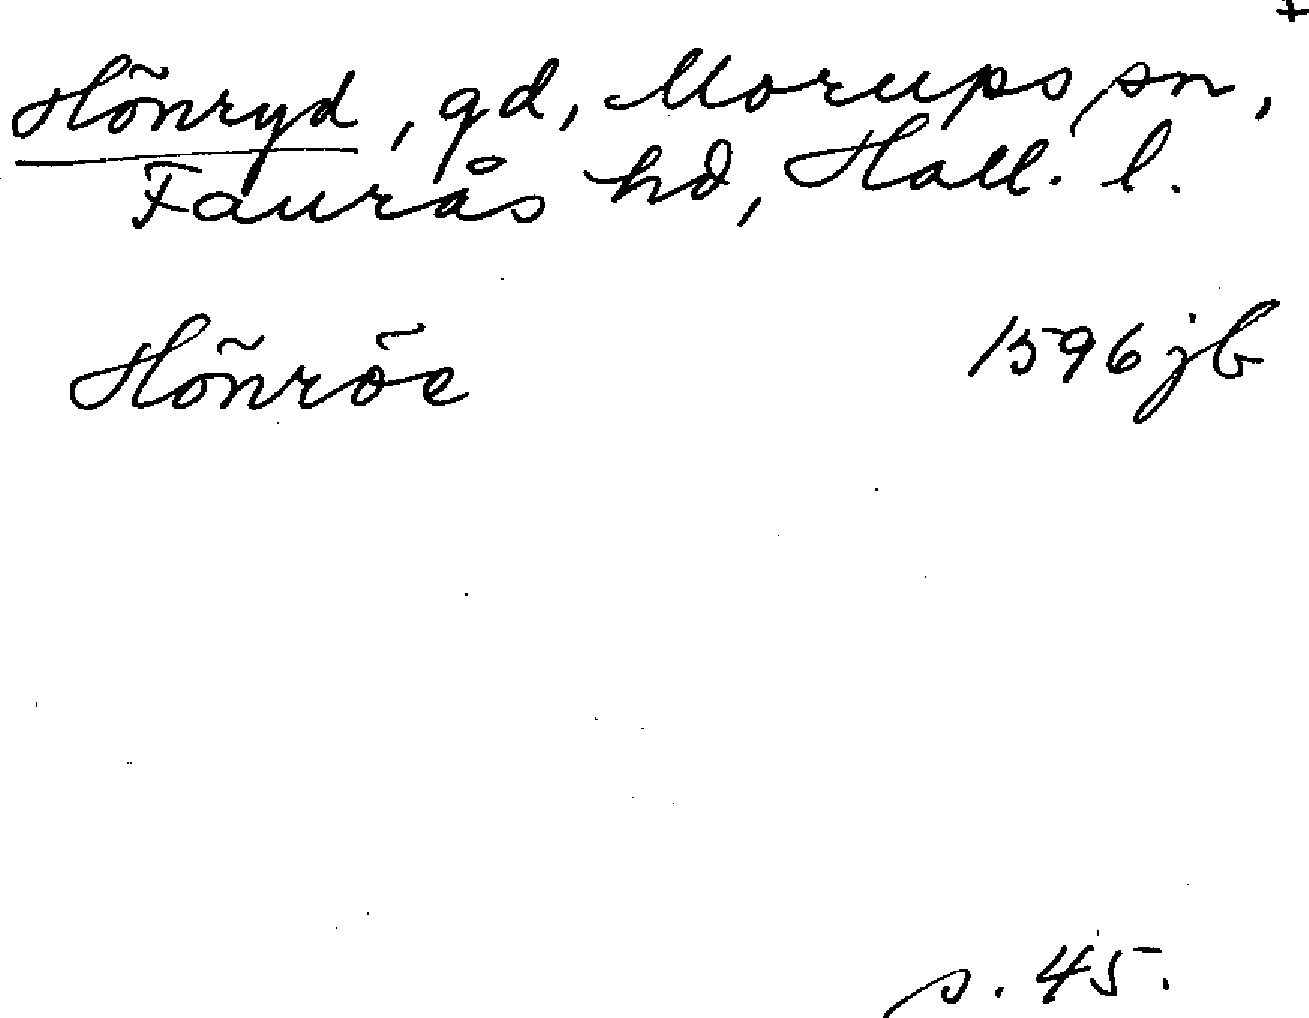 +
Hönryd, gd, Morups sn,
Faurås hd, Hall. l.
Hönröe 1596 jb
s. 45.